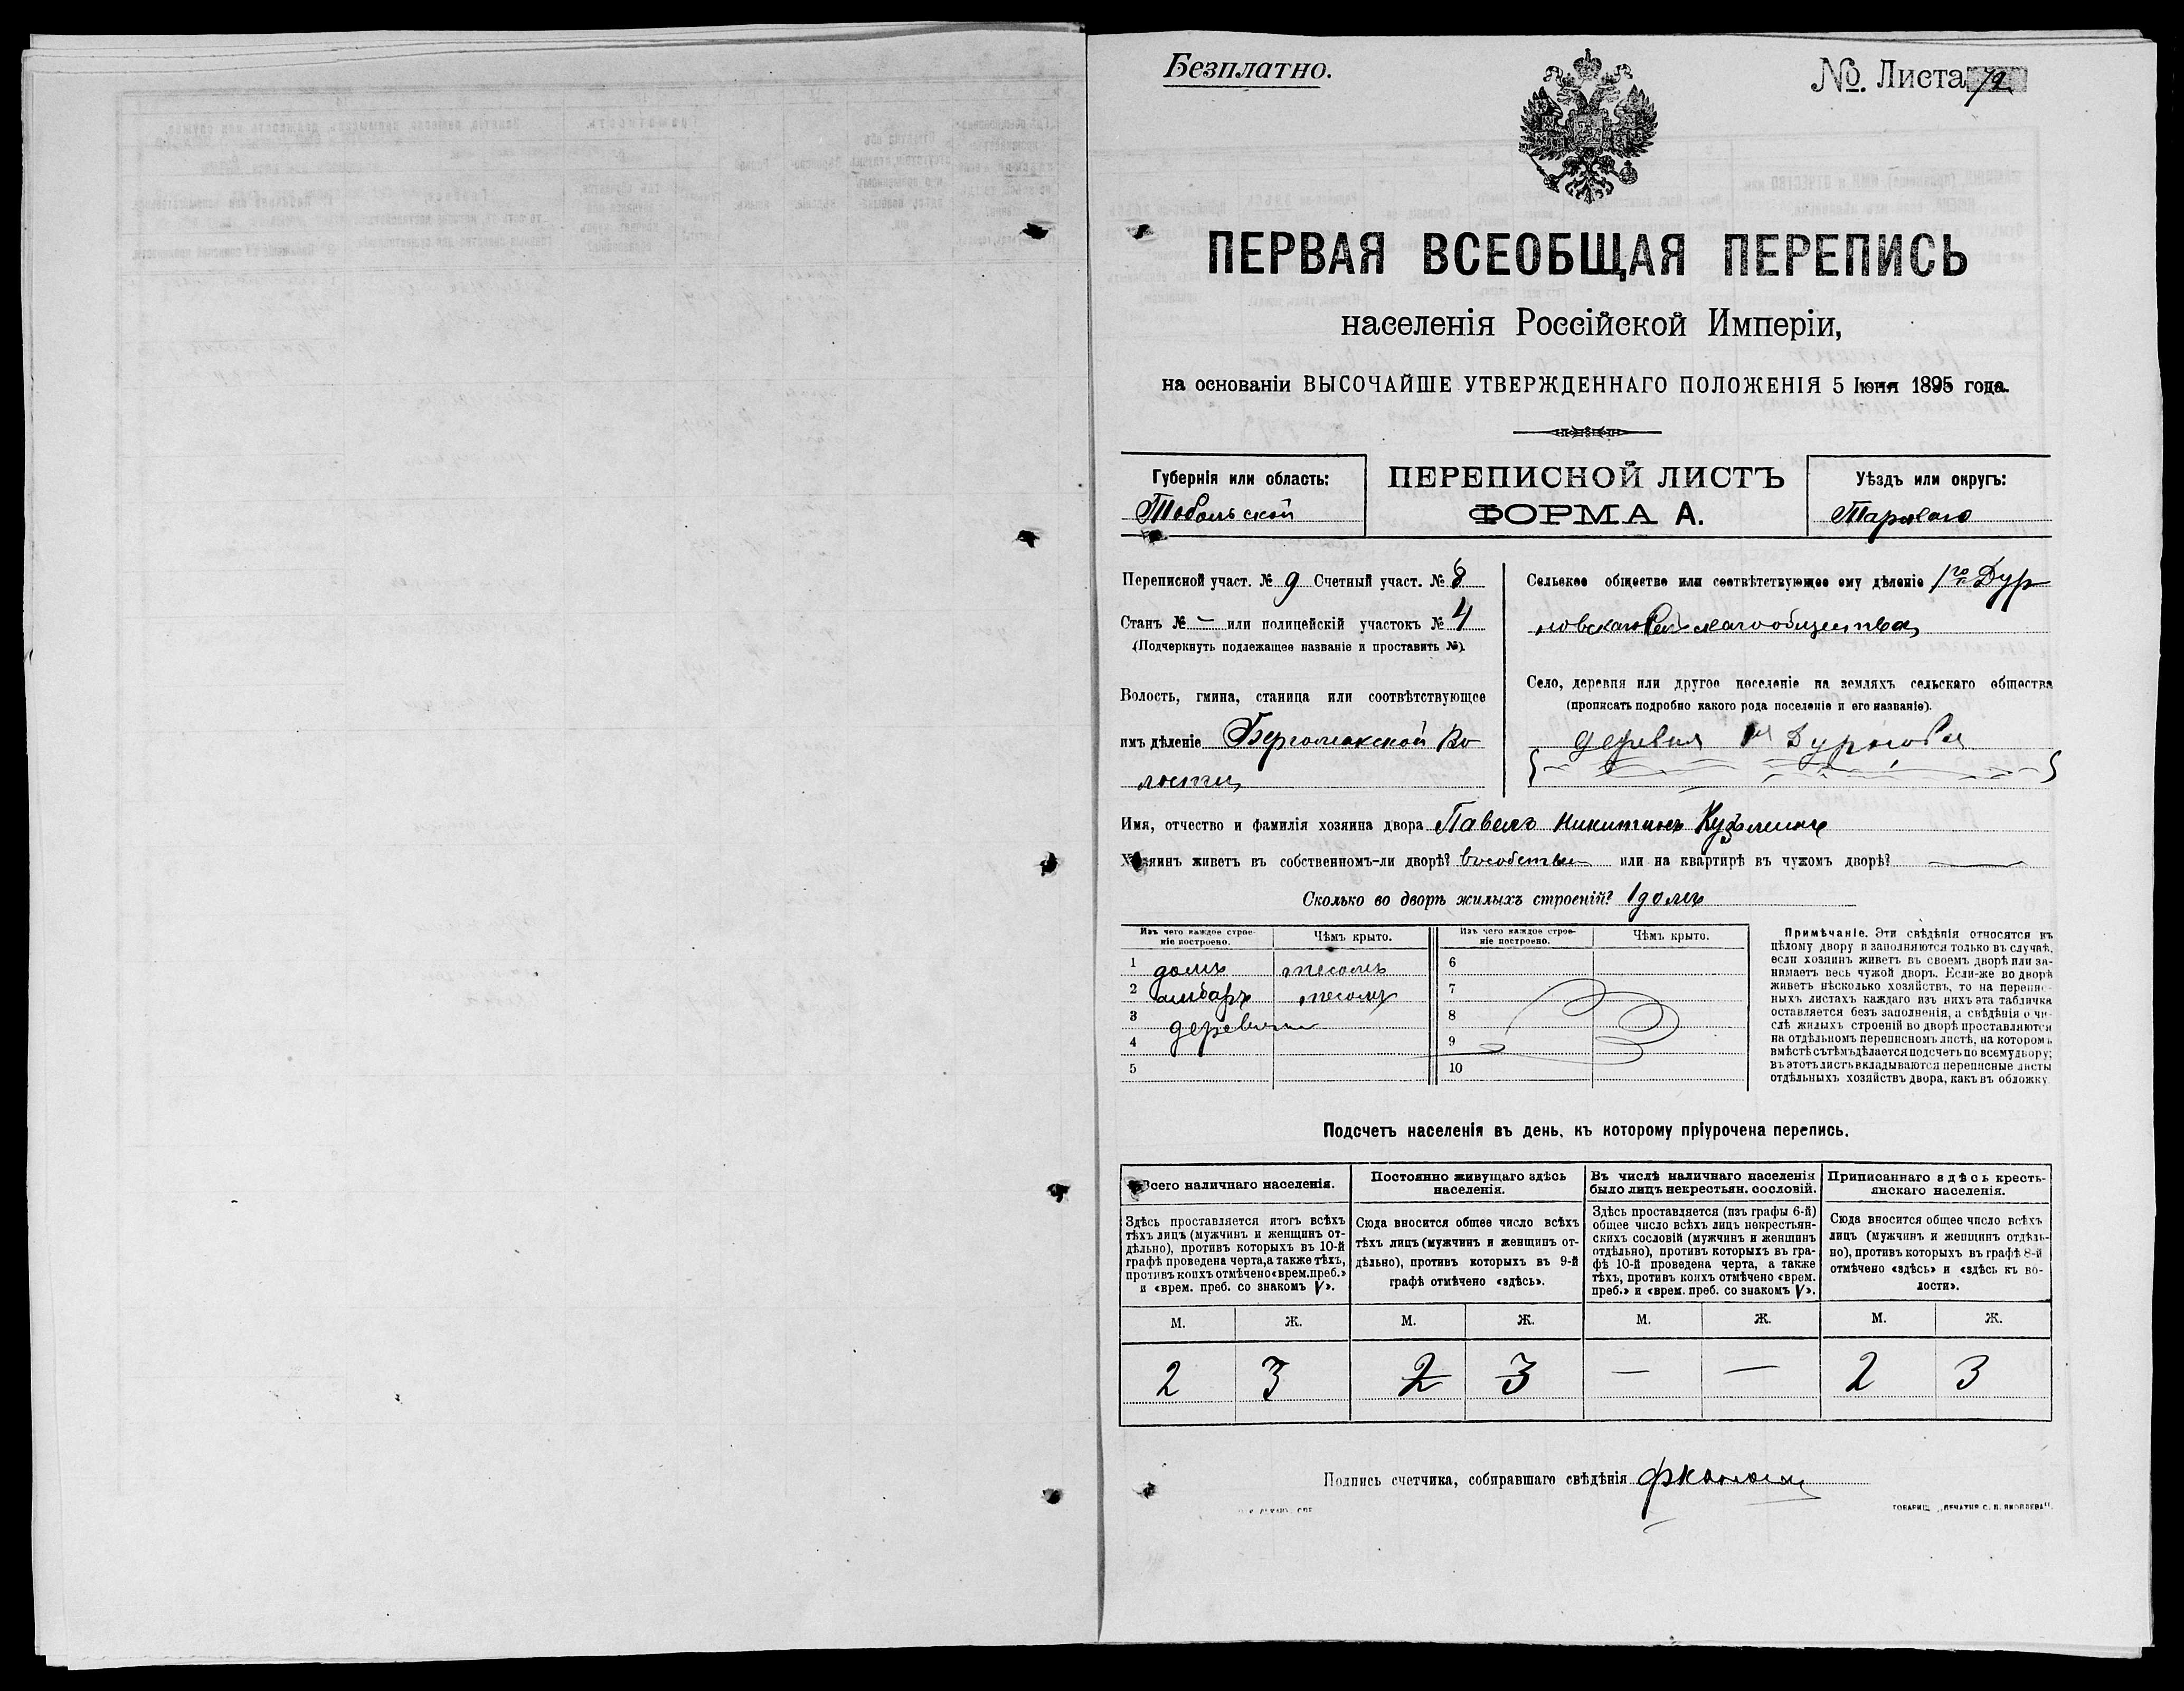 Безплатно.
№. Листа 72
ПЕРВАЯ ВСЕОБЩАЯ ПЕРЕПИСЬ
населенія Россійской Имперіи,
на основаніи ВЫСОЧАЙШЕ УТВЕРЖДЕННАГО ПОЛОЖЕНІЯ 5 Іюня 1895 года.
Губернія или область:
Тобольской
ПЕРЕПИСНОЙ ЛИСТЪ
ФОРМА А.
Уѣздъ или округъ:
Тарскаго
Переписной участ. № 9 Счетный участ. № 8
Станъ № – или полицейскій участокъ № 4
(Подчеркнуть подлежащее названіе и проставить №).
Волость, гмина, станица или соотвѣтствующее
имъ дѣленіе Бергамакской Во
лости
Сельское общество или соотвѣтствующее ему дѣленіе 1го Дур
новскаго Сельскаго общества
Село, деревня или другое поселеніе на земляхъ сельскаго общества
(прописать подробно какого рода поселеніе и его названіе).
деревня 1я Дурнова
Имя, отчество и фамилія хозяина двора Павелъ Никитинъ Кузьминъ
Хозяинъ живетъ въ собственномъ-ли дворѣ? в собствен или на квартирѣ въ чужомъ дворѣ? —
Сколько во дворѣ жилыхъ строеній? 1 домъ
Изъ чего каждое строе-
ніе построено.
Чѣмъ крыто.
Изъ чего каждое строе-
ніе построено.
Чѣмъ крыто.
1 домъ тесомъ 6
2 амбаръ тесомъ 7
3 деревян 8
4 9
5 10
Примѣчаніе. Эти свѣдѣнія относятся къ
цѣлому двору и заполняются только въ случаѣ,
если хозяинъ живетъ въ своемъ дворѣ или за-
нимаетъ весь чужой дворъ. Если-же во дворѣ
живетъ нѣсколько хозяйствъ, то на перепис-
ныхъ листахъ каждаго изъ нихъ эта табличка
оставляется безъ заполненія, а свѣдѣнія о чи-
слѣ жилыхъ строеній во дворѣ проставляются
на отдѣльномъ переписномъ листѣ, на которомъ
вмѣстѣ съ тѣмъ дѣлается подсчетъ по всему двору;
въ этотъ листъ вкладываются переписные листы
отдѣльныхъ хозяйствъ двора, какъ въ обложку
Подсчетъ населенія въ день, къ которому пріурочена перепись.
Всего наличнаго населенія.
Постоянно живущаго здѣсь
населенія.
Въ числѣ наличнаго населенія
было лицъ некрестьян. сословій.
Приписаннаго здѣсь кресть-
янскаго населенія.
Здѣсь проставляется итогъ всѣхъ
тѣхъ лицъ (мужчинъ и женщинъ от-
дѣльно), противъ которыхъ въ 10-й
графѣ проведена черта, а также тѣхъ,
противъ коихъ отмѣчено «врем. преб.»
и «врем. преб. со знакомъ V».
Сюда вносится общее число всѣхъ
тѣхъ лицъ (мужчинъ и женщинъ от-
дѣльно), противъ которыхъ въ 9-й
графѣ отмѣчено «здѣсь».
Здѣсь проставляется (изъ графы 6-й)
общее число всѣхъ лицъ некрестьян-
скихъ сословій (мужчинъ и женщинъ
отдѣльно), противъ которыхъ въ гра-
фѣ 10-й проведена черта, а также
тѣхъ, противъ коихъ отмѣчено «врем.
преб.» и «врем. преб. со знакомъ V».
Сюда вносится общее число всѣхъ
лицъ (мужчинъ и женщинъ отдѣль-
но), противъ которыхъ въ графѣ 8-й
отмѣчено «здѣсь» и «здѣсь къ во-
лости».
М. Ж. М. Ж. М. Ж. М. Ж.
2 3 2 3 — — 2 3
Подпись счетчика, собиравшаго свѣдѣнія
ТОВАРИЩ. „ПЕЧАТНЯ С. П. ЯКОВЛЕВА“.